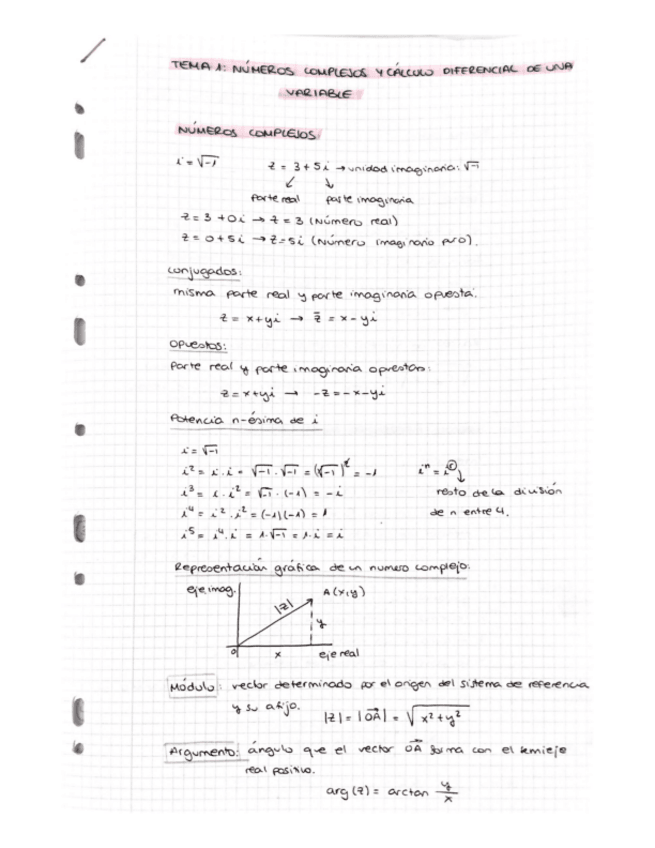 TEMA 1: NÚMEROS COMPLEJOS Y CÁLCULO DIFERENCIAL DE UNA
VARIABLE
NÚMEROS COMPLEJOS:
i = √-1 z = 3 + 5i → unidad imaginaria: √-1
↙ ↘
parte real parte imaginaria
z = 3 + 0i → z = 3 (Número real)
z = 0 + 5i → z = 5i (Número imaginario puro).
Conjugados:
misma parte real y parte imaginaria opuesta:
z = x + yi → z̄ = x - yi
Opuestos:
Parte real y parte imaginaria opuestas:
z = x + yi → -z = -x - yi
Potencia n-ésima de i
i = √-1
i² = i · i = √-1 · √-1 = (√-1)² = -1 iⁿ = i^r
i³ = i · i² = √-1 · (-1) = -i resto de la división
i⁴ = i² · i² = (-1)(-1) = 1 de n entre 4.
i⁵ = i⁴ · i = 1 · √-1 = 1 · i = i
Representación gráfica de un numero complejo:
eje imag. A(x,y)
|z|
y
0 x eje real
Módulo: vector determinado por el origen del sistema de referencia
y su afijo. |z| = |OA⃗| = √x² + y²
Argumento: ángulo que el vector OA⃗ forma con el semieje
real positivo.
arg(z) = arctan y/x